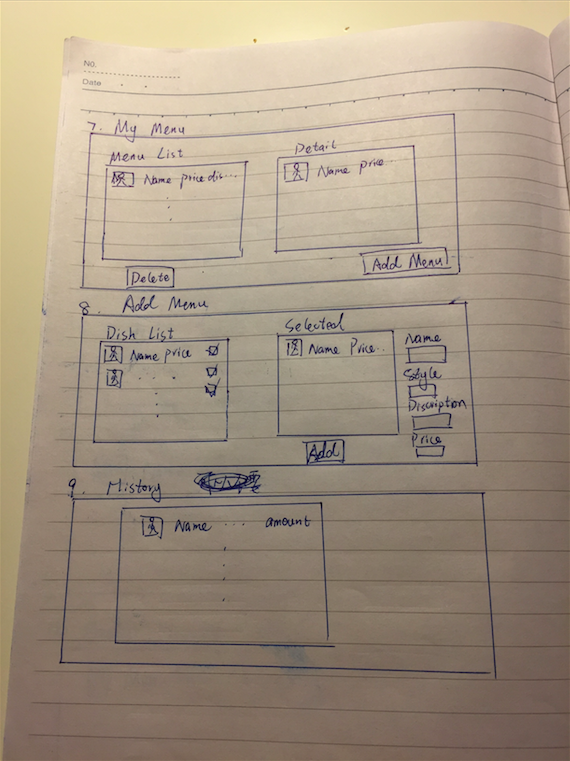 NO.
Date
7. My Menu
Menu List
Name price dis...
Delete
Detail
Name price...
Add Menu
8. Add Menu
Dish List
Name price
Selected
Name Price..
Add
Name
Style
Discription
Price
9. History
Name ... amount